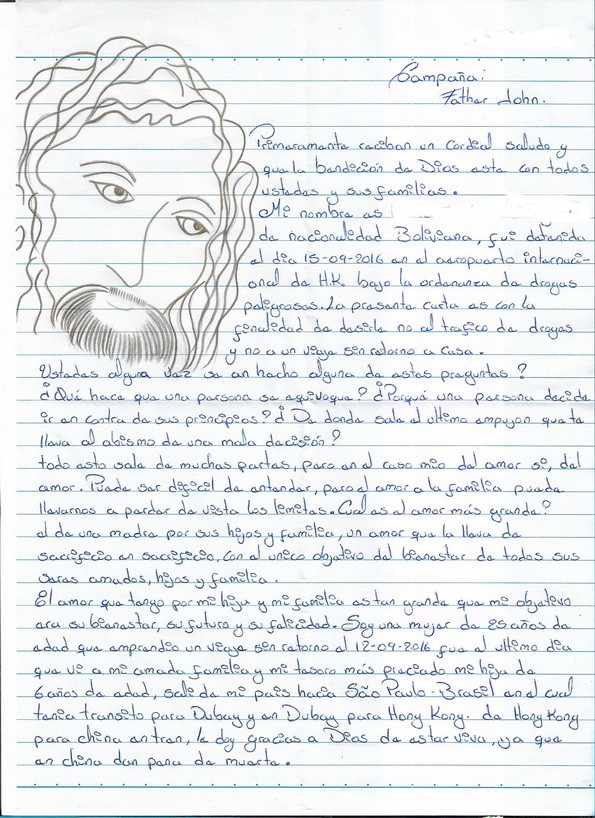 Campaña:
Father John.
Primeramente reciban un Cordial saludo y
que la bendición de Dios este con todos
ustedes y sus familias.
Mi nombre es
de nacionalidad Boliviana, fui detenida
el dia 15-09-2016 en el aeropuerto internaci-
onal de H.K. bajo la ordenanza de drogas
peligrosas. La presente carta es con la
finalidad de desirle no al trafico de drogas
y no a un viaje sin retorno a casa.
Ustedes alguna vez se an hecho alguna de estas preguntas?
¿Qué hace que una persona se equivoque? ¿Porqué una persona decide
ir en contra de sus principios? ¿De donde sale el ultimo empujon que te
lleva al abismo de una mala decisión?
todo esto sale de muchas partes, pero en el caso mio del amor si, del
amor. Puede ser dificil de entender, pero el amor a la familia puede
llevarnos a perder de vista los limites. Cual es el amor más grande?
el de una madre por sus hijos y familia, un amor que la lleva de
sacrificio en sacrificio, con el unico objetivo del bienestar de todos sus
seres amados, hijos y familia.
El amor que tengo por mi hija y mi familia es tan grande que mi objetivo
era su bienestar, su futuro y su felicidad. Soy una mujer de 25 años de
edad que emprendio un viaje sin retorno el 12-09-2016 fue el ultimo dia
que vi a mi amada familia y mi tesoro más preciado mi hija de
6 años de edad, sali de mi pais hacia São Paulo-Brasil en el cual
tenia transito para Dubay y en Dubay para Hong Kong. de Hong Kong
para china en tren, le doy gracias a Dios de estar viva, ya que
en china dan pena de muerte.